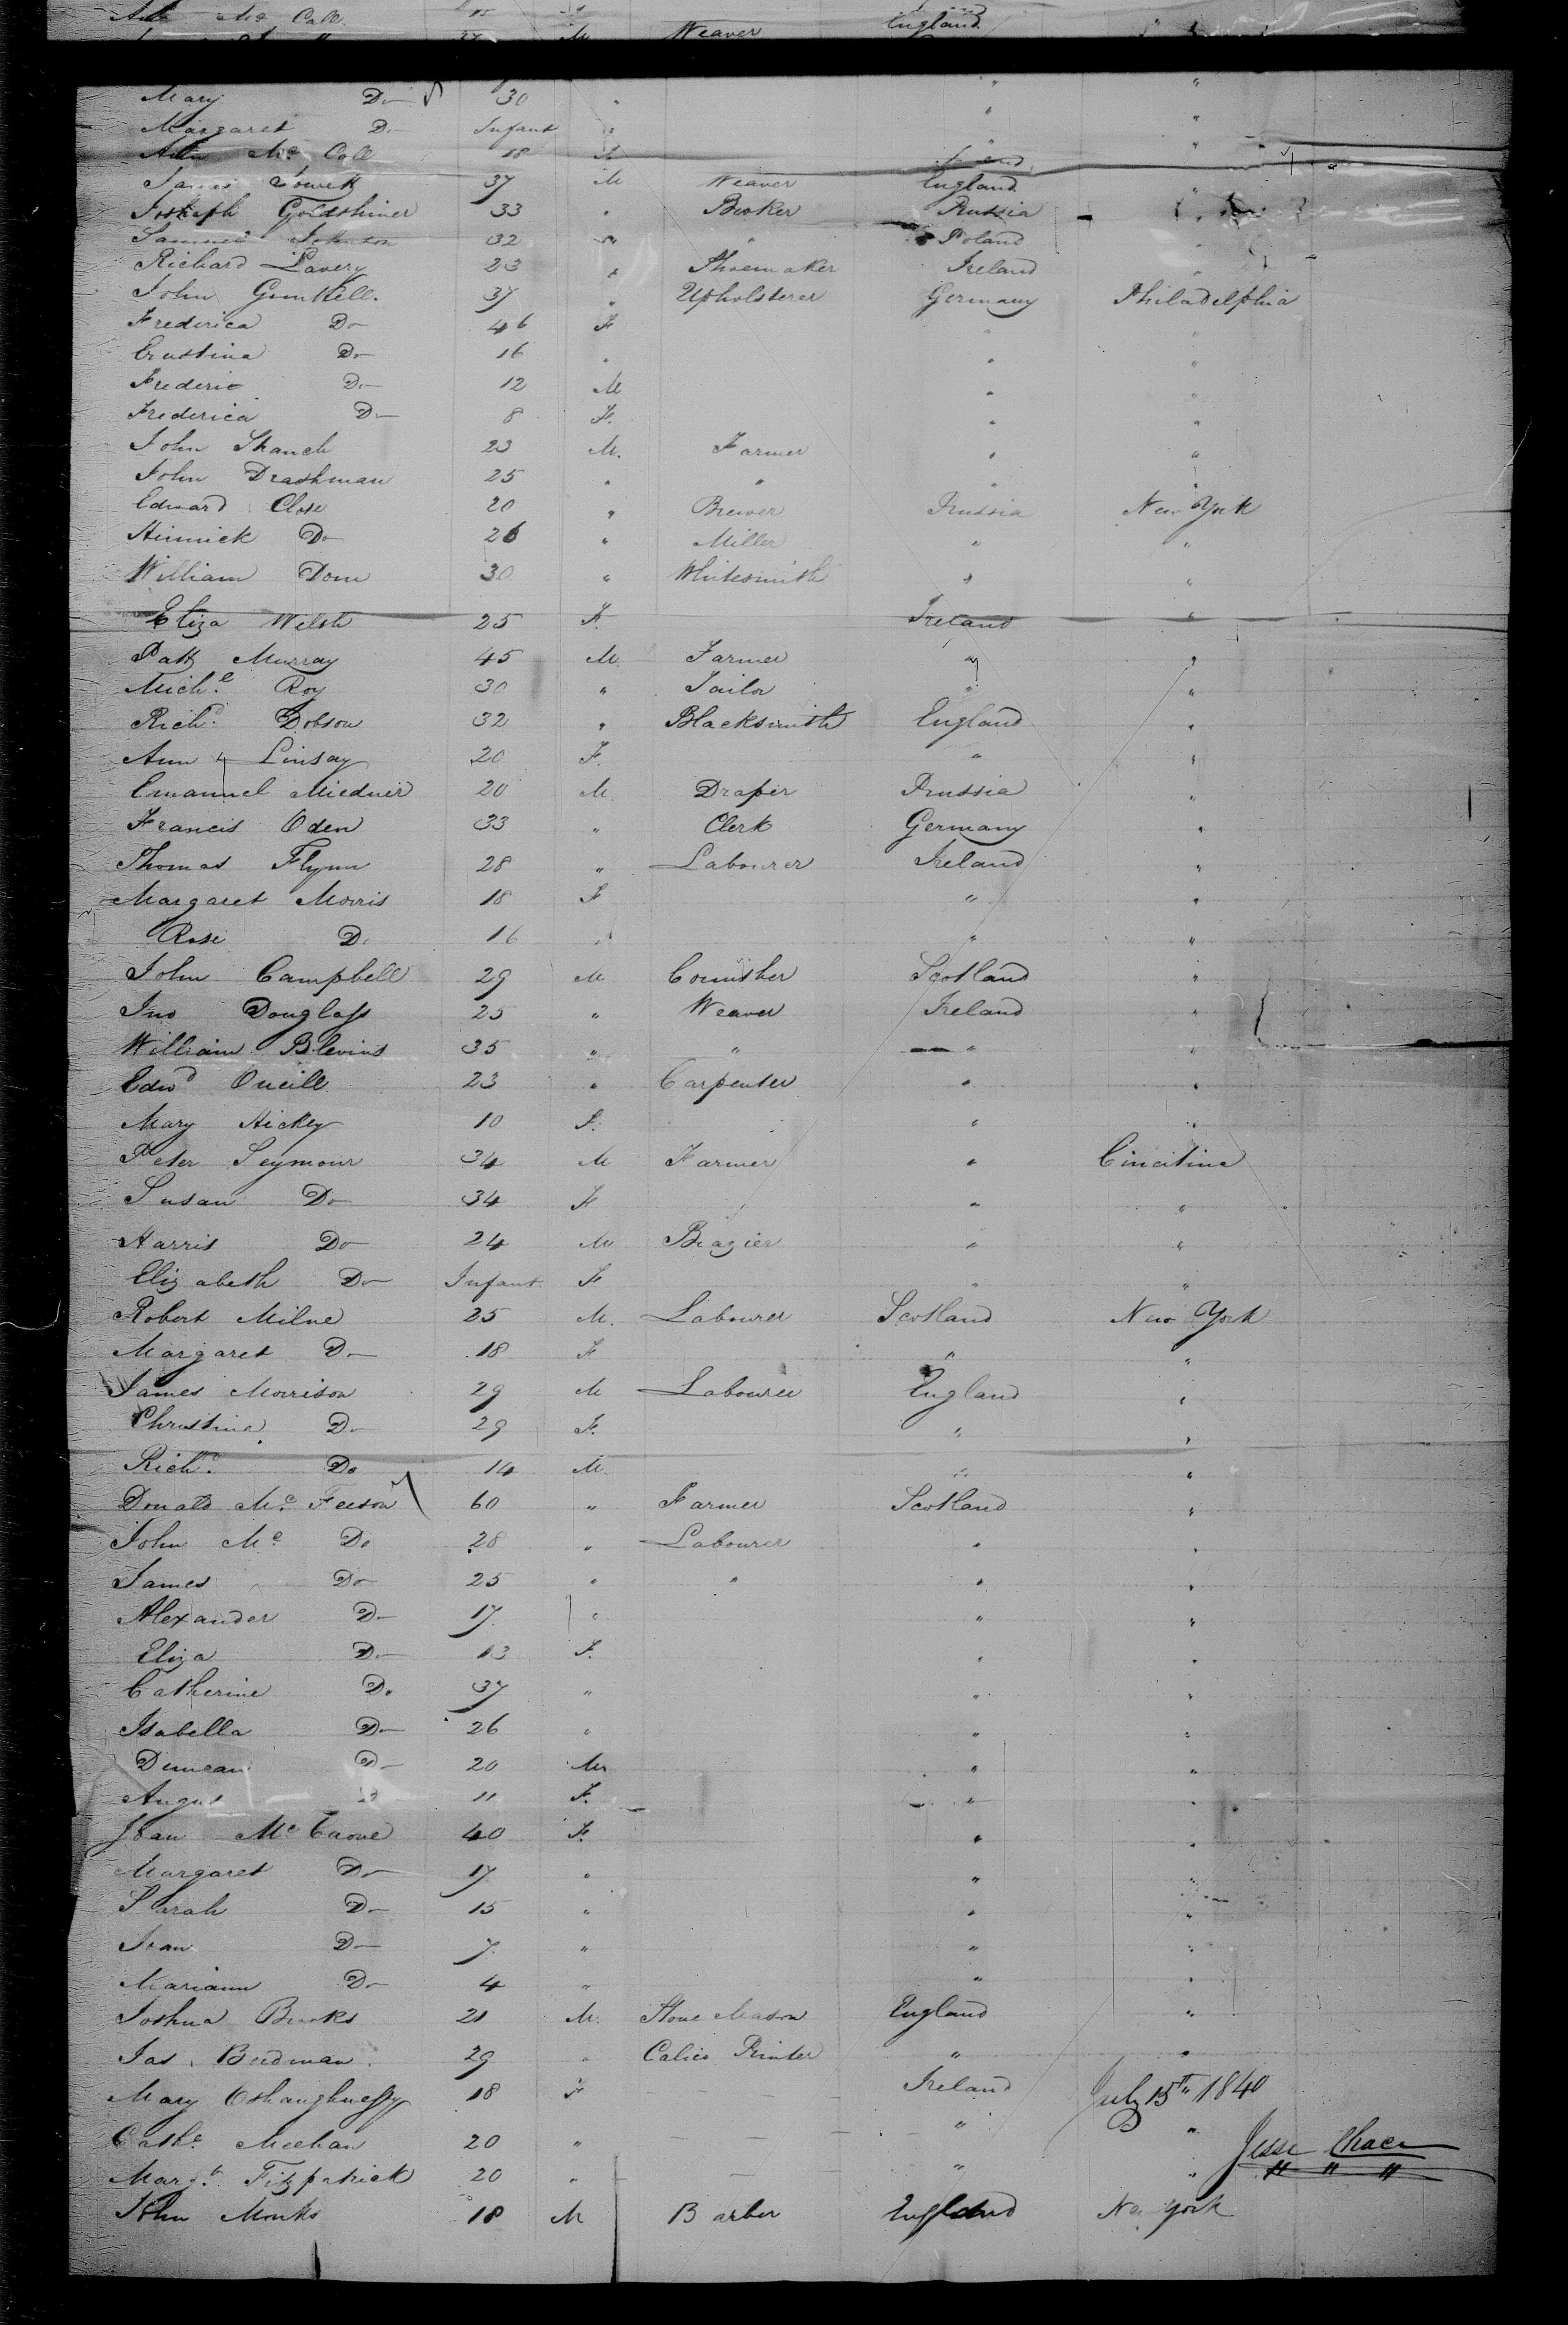 Ann Mc Call 18
37 M Weaver England
Mary Do 30 " " "
Margaret Do Infant " " "
Ann Mc Call 18 F "
James 37 M Weaver England "
Joshaph Goldshiner 33 " Prussia
Samuel Johnson 32 " " Poland
Richard Lavery 23 " Shoemaker Ireland "
John Gunkell. 37 " Upholsterer Germany Philadelphia
Frederica Do 46 F " "
Crustina Do 16 " " "
Frederic Do 12 M " "
Frederica Do 8 F. " "
John Shanch 23 M. Farmer " "
John Drashman 25 " " " "
Edward Close 20 " Brewer Prussia New York
Hinnick Do 26 " Miller " "
William Dom 30 " Whitesmith " "
Eliza Welsh 25 F. Ireland "
Patk Murray 45 M. Farmer " "
Michl. Roy 30 " Tailor " "
Richd. Dobson 32 " Blacksmith England "
Ann Linsay 20 F. " "
Emanuel Miedner 20 M. Draper Prussia "
Francis Oden 33 " Clerk Germany "
Thomas Flynn 28 " Labourer Ireland "
Margaret Morris 18 F " "
Rose Do 16 " " "
John Campbell 29 M Scotland "
Jno Douglass 25 " Weaver Ireland "
William Blevins 35 " " " "
Edwd Oneill 23 " Carpenter " "
Mary Hickey 10 F. " "
Peter Seymour 34 M Farmer " Cincitina
Susan Do 34 F " "
Harris Do 24 M Brazier " "
Elizabeth Do Infant F " "
Robert Milne 25 M. Labourer Scotland New York
Margaret Do 18 F " "
James Morrison 29 M Labourer England "
Christina Do 29 F. " "
Richd. Do 14 M. " "
Donald Mc. Feeson 60 " Farmer Scotland "
John Mc Do 28 " Labourer " "
James Do 25 " " " "
Alexander Do 17 " " "
Eliza Do 13 F. " "
Catherine Do 37 " " "
Isabella Do 26 " " "
Duncan Do 20 M " "
Angus Do 11 F. " "
Joan Mc 40 F. " "
Margaret Do 17 " " "
Sarah Do 15 " " "
Joan Do 7 " " "
Mariann Do 4 " " "
Joshua Burks 21 M. Stone Mason England "
Jas. Birdman. 29 " Calico Printer " "
Mary Oshaughnessy 18 F Ireland July 15th 1840
Cathe. Meehan 20 " " "
Jesse Chace
Margt. Fitzpatrick 20 " " " " " "
John Monks 18 M Barber England New York